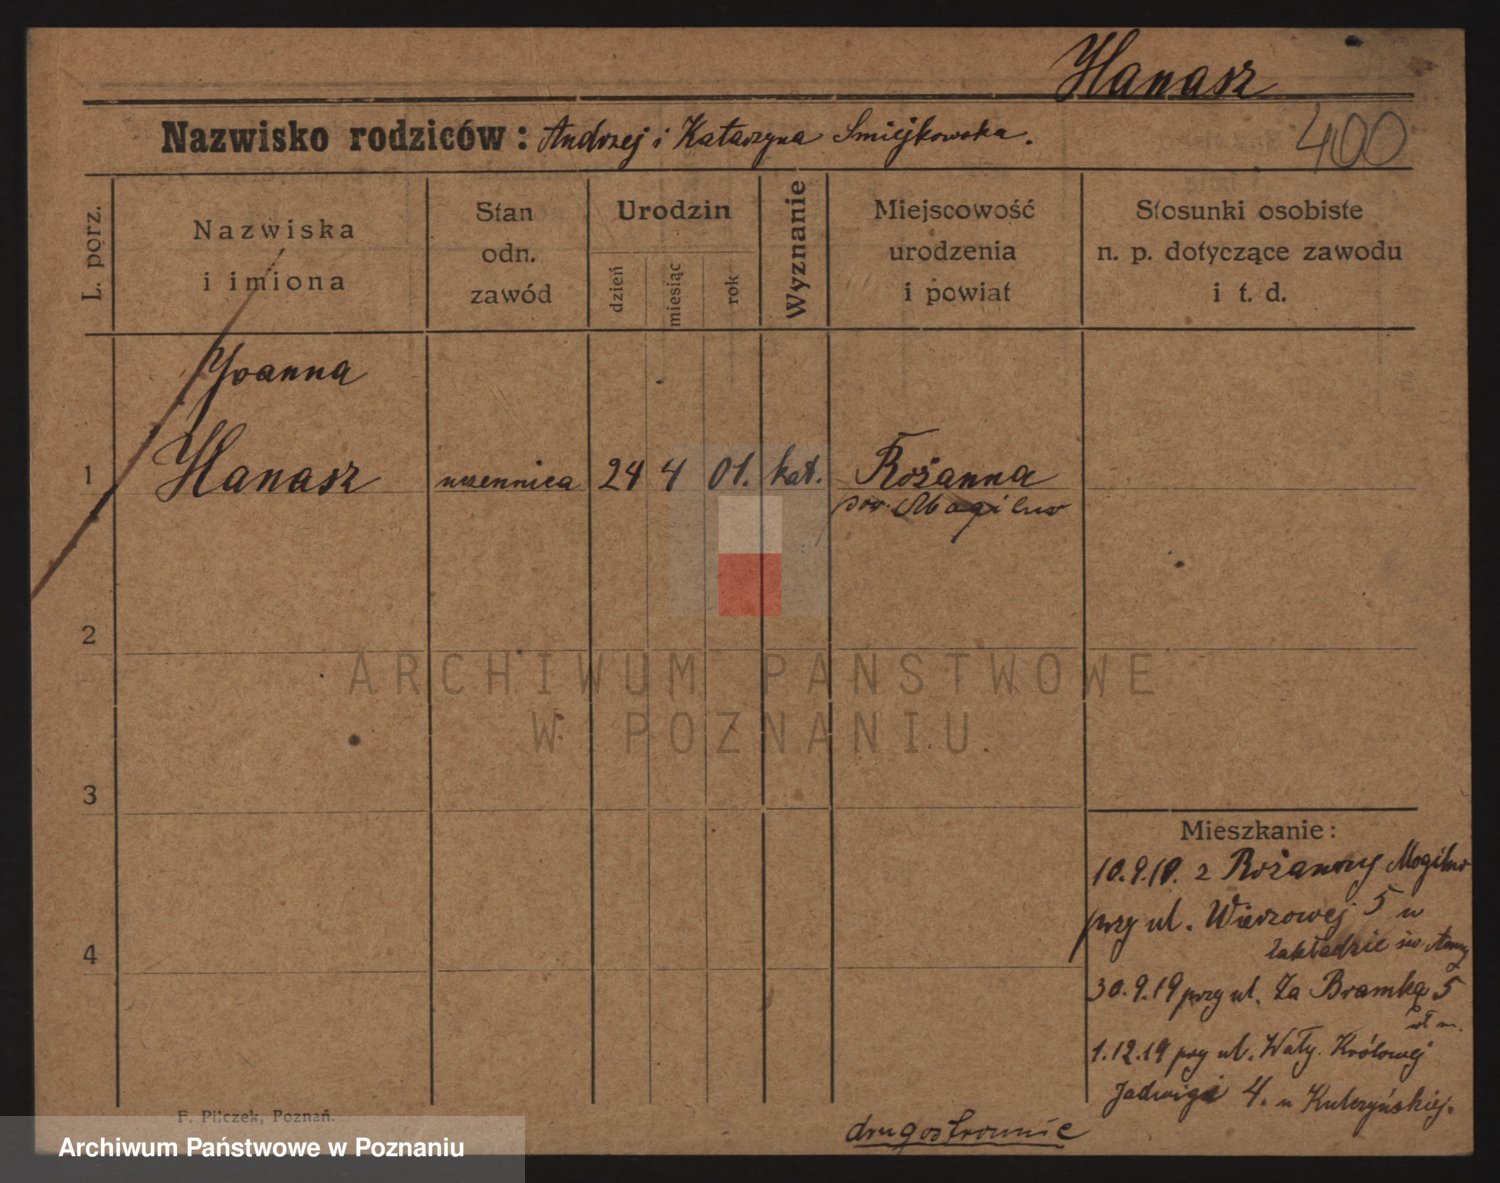 Hanasz
Nazwisko rodziców: Andrzej i Katarzyna Smiejkowska.
400
L. porz.
Nazwiska
i imiona
Stan
odn.
zawód
Urodzin
dzień
miesiąc
rok
Wyznanie
Miejscowość
urodzenia
i powiat
Stosunki osobiste
n. p. dotyczące zawodu
i t. d.
Joanna
1 Hanasz uczennica 24 4 01. kat. Rożanna
pow. Mogilno
2
ARCHIWUM PAŃSTWOWE
W POZNANIU
3
Mieszkanie:
10.9.19. z Rożanny Mogilno
przy ul. Wieżowej 5 w
zakładzie św. Anny
4
30.9.19 przy ul. Za Bramką 5
1.12.19 przy ul. Wały Królowej
Jadwigi 4. u Kulczyńskiej.
F. Pilczek, Poznań.
drugostronnie
Archiwum Państwowe w Poznaniu